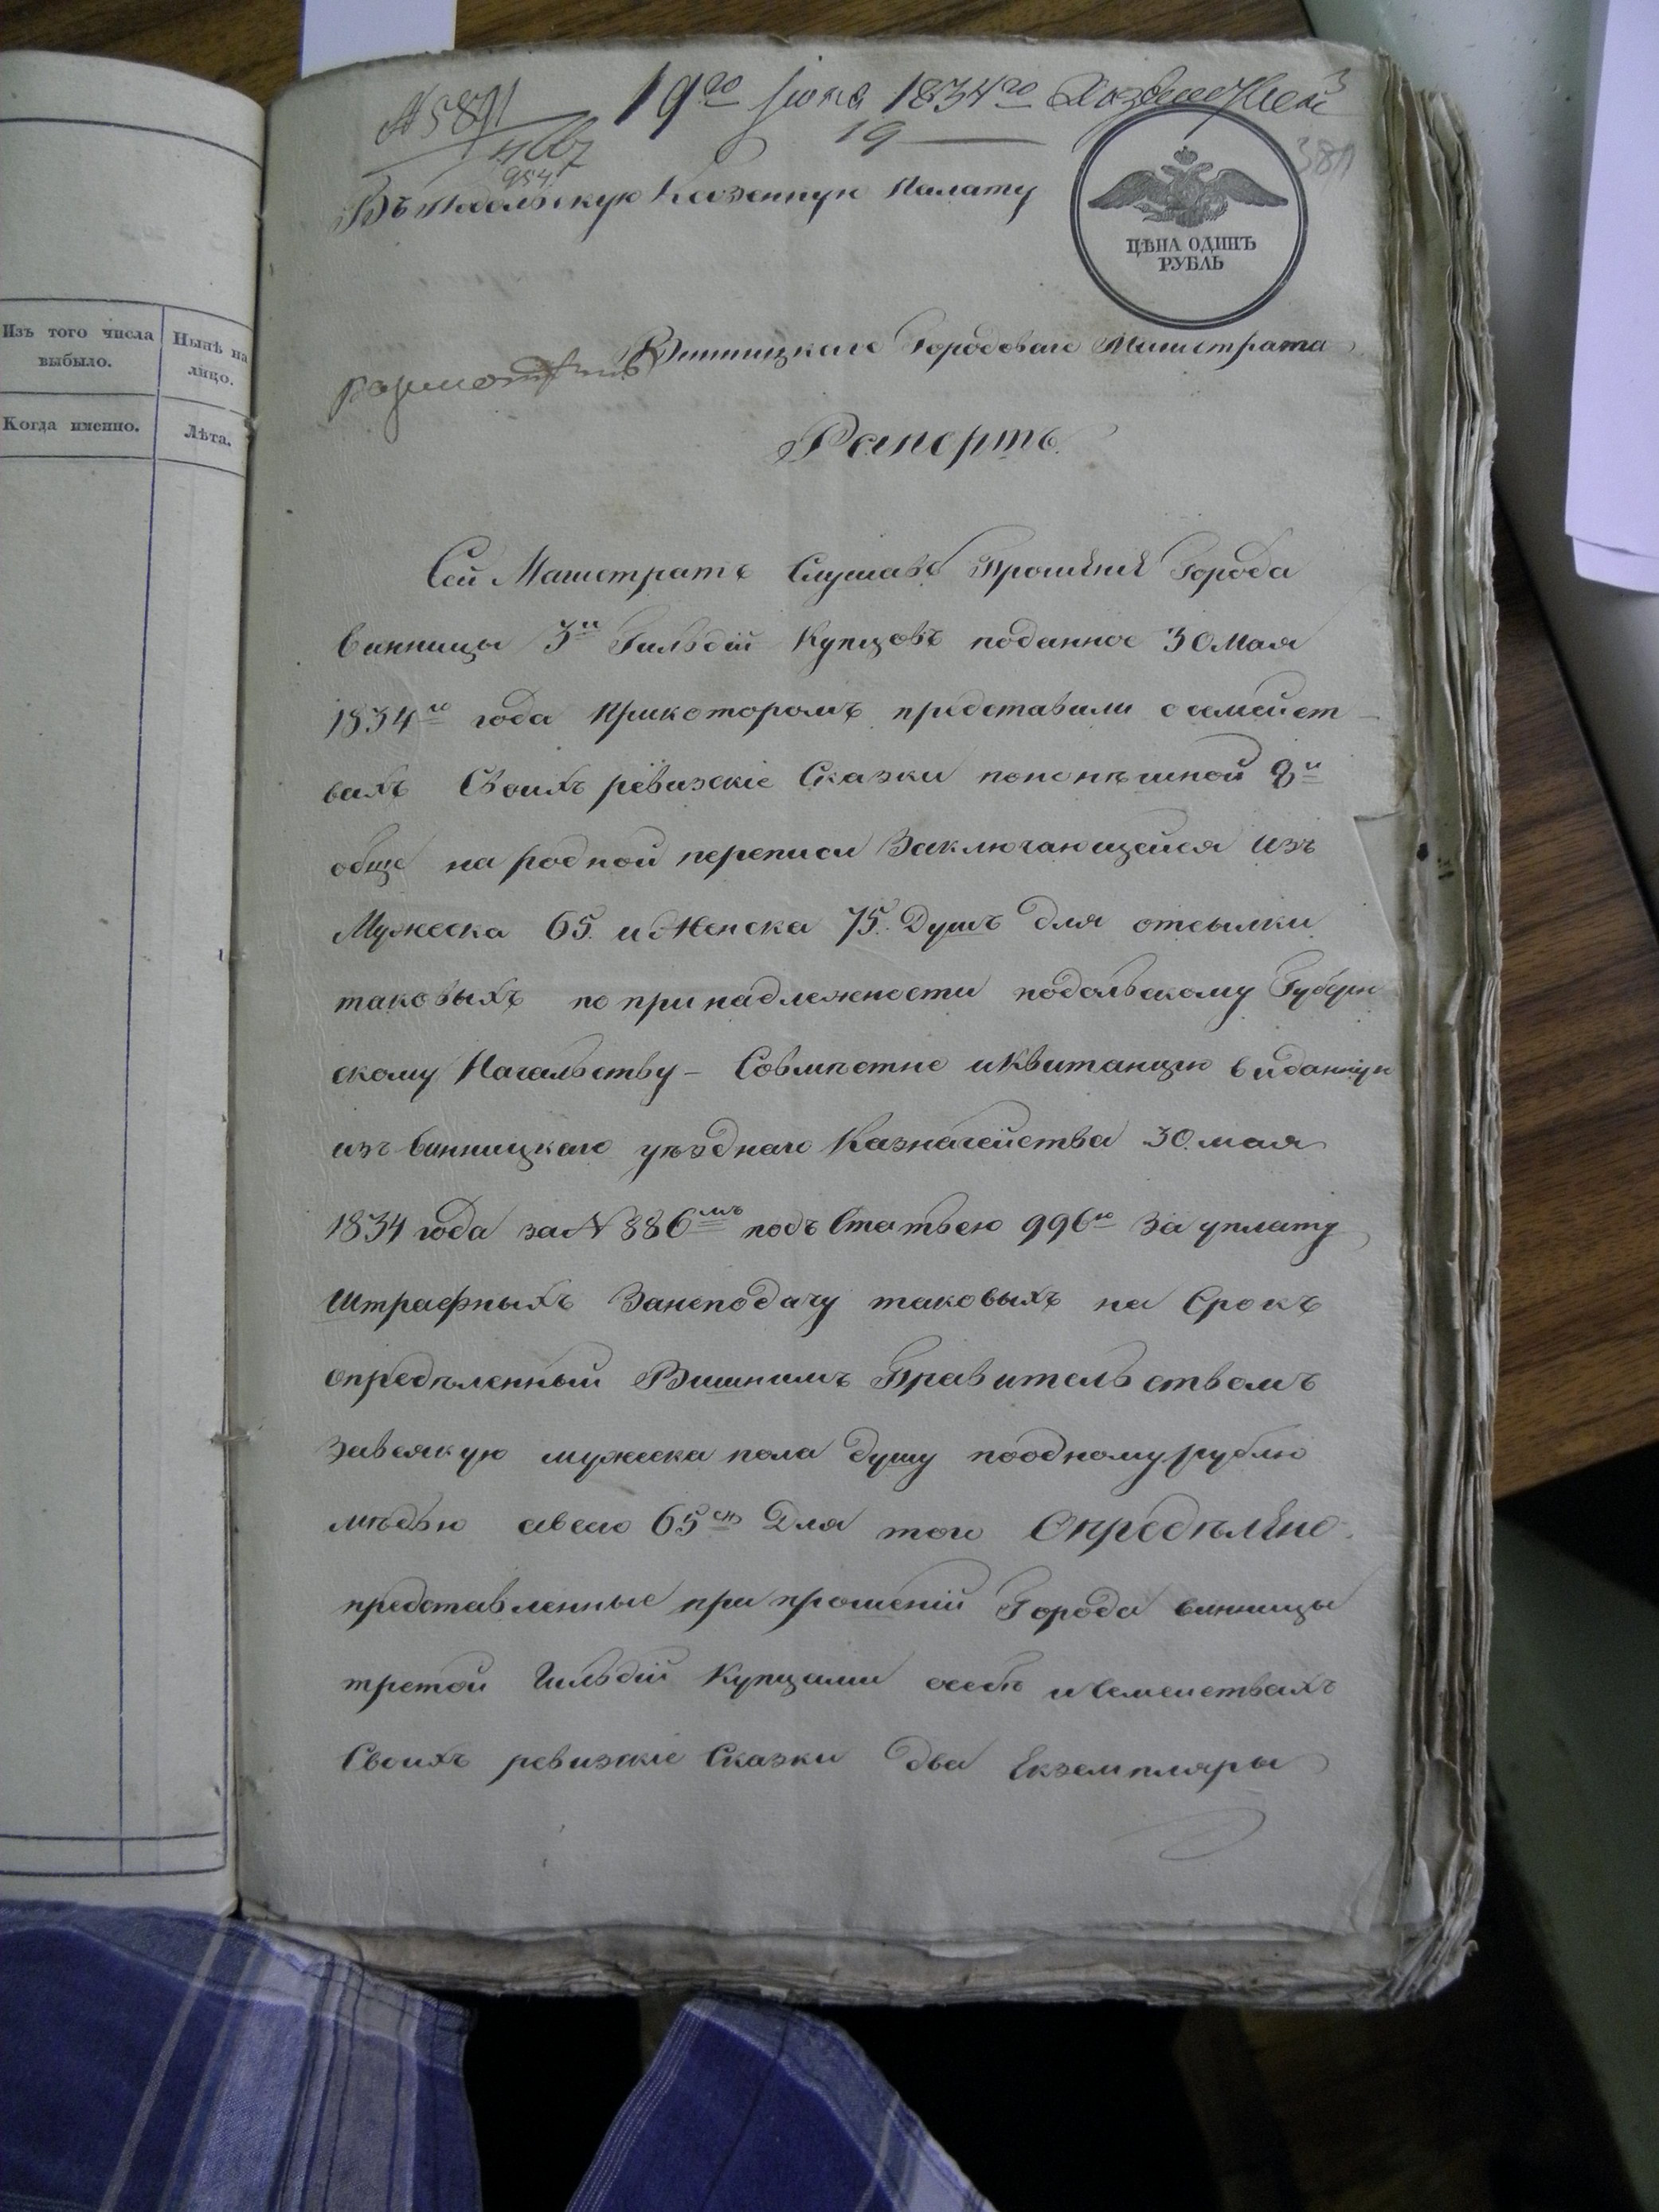 Изъ того числа
выбыло.
Нынѣ на
лицо.
Когда именно.
Лѣта.
19го Іюня 1834го
19
954
381
Въ Подольскую Казенную Палату
ЦѢНА ОДИНЪ
РУБЛЬ
Винницкаго Городоваго Магистрата
разсмотрѣть
Рапортъ
Сей Магистратъ Слушавъ Прошение Города
Винницы 3й Гильдіи Купцовъ поданное 30 Мая
1834го года прикоторомъ представили осемейст-
вахъ Своихъ ревизскіе Сказки понынѣшной 8й
обще народной переписи Заключающейся изъ
Мужеска 65. и Женска 75. Душъ для отсылки
таковыхъ по принадлежности подольскому Губерн
скому Начальству - Совместно иКвитанцію виданную
изъ Винницкаго уезднаго Казначейства 30. мая
1834 года за N 886мъ подъ Статьею 996ю За уплату
Штрафныхъ Занеподачу таковыхъ на Срокъ
определенный Вишнимъ Правительствомъ
Завсякую мужеска пола душу поодному рублю
медью авсего 65 Для того Определено
представленные при прошеніи Города Винницы
третой Гильдіи Купцами осебѣ иСемействахъ
Своихъ ревизскіе Сказки два Екземпляры